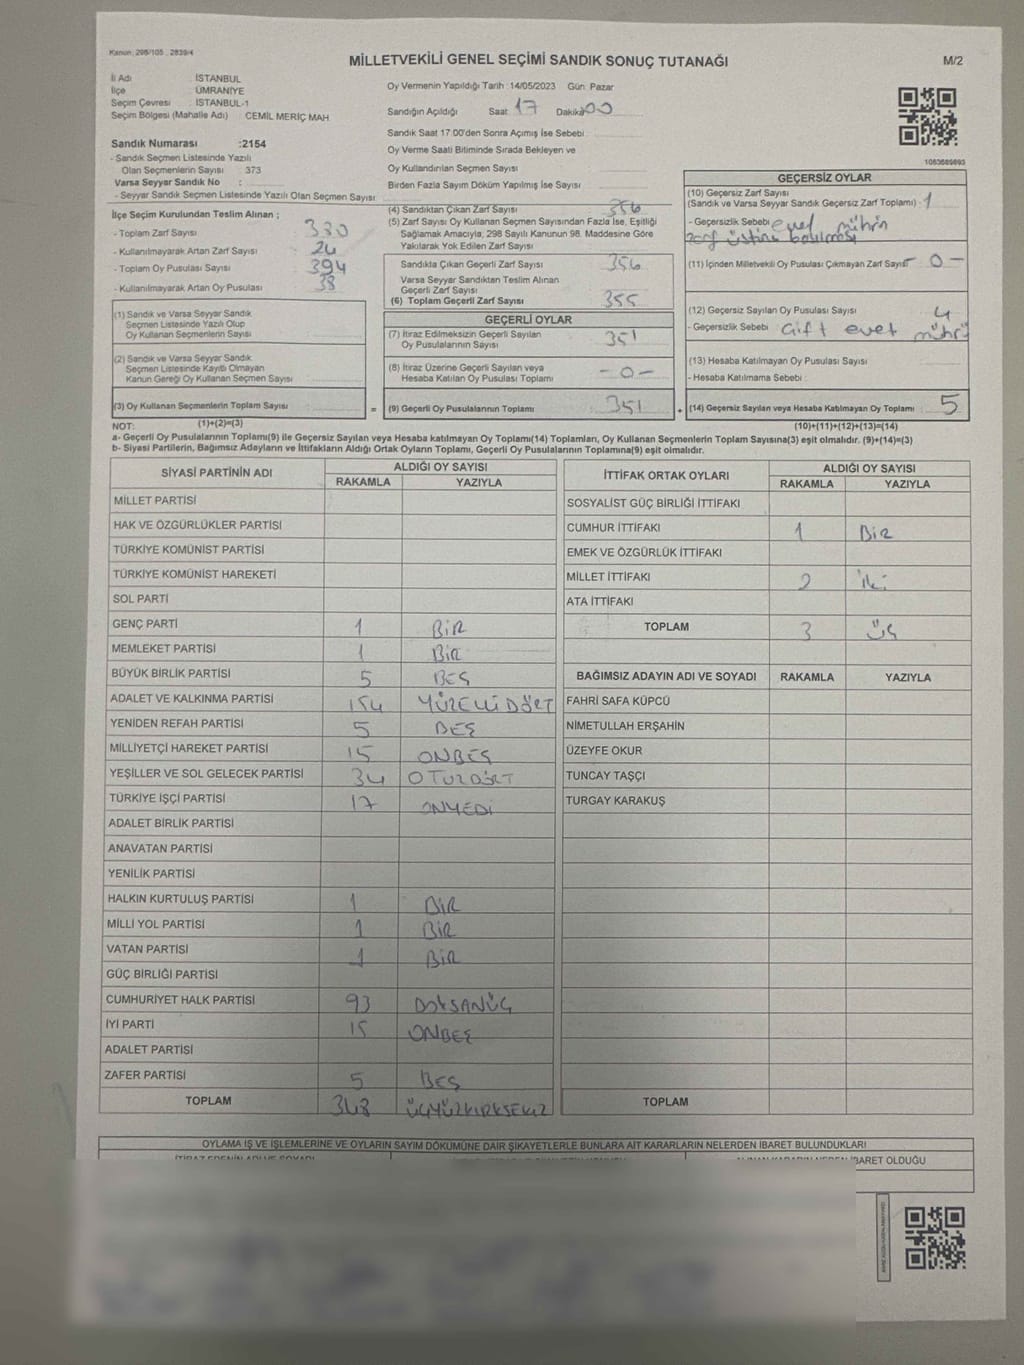 Kanun: 298/105 , 2839/4
MİLLETVEKİLİ GENEL SEÇİMİ SANDIK SONUÇ TUTANAĞI
M/2
İl Adı : İSTANBUL
İlçe : ÜMRANİYE
Seçim Çevresi : İSTANBUL-1
Seçim Bölgesi (Mahalle Adı) CEMİL MERİÇ MAH.
Sandık Numarası :2154
- Sandık Seçmen Listesinde Yazılı
Olan Seçmenlerin Sayısı : 373
Varsa Seyyar Sandık No :
- Seyyar Sandık Seçmen Listesinde Yazılı Olan Seçmen Sayısı :
Oy Vermenin Yapıldığı Tarih :14/05/2023 Gün: Pazar
Sandığın Açıldığı Saat 17 Dakika 00
Sandık Saat 17.00'den Sonra Açımış İse Sebebi
Oy Verme Saati Bitiminde Sırada Bekleyen ve
Oy Kullandırılan Seçmen Sayısı
Birden Fazla Sayım Döküm Yapılmış İse Sayısı
1083689893
İlçe Seçim Kurulundan Teslim Alınan ;
- Toplam Zarf Sayısı 380
- Kullanılmayarak Artan Zarf Sayısı 24
- Toplam Oy Pusulası Sayısı 394
- Kullanılmayarak Artan Oy Pusulası 38
(1) Sandık ve Varsa Seyyar Sandık
Seçmen Listesinde Yazılı Olup
Oy Kullanan Seçmenlerin Sayısı
(2) Sandık ve Varsa Seyyar Sandık
Seçmen Listesinde Kayıtlı Olmayan
Kanun Gereği Oy Kullanan Seçmen Sayısı
(3) Oy Kullanan Seçmenlerin Toplam Sayısı
(1)+(2)=(3)
(4) Sandıktan Çıkan Zarf Sayısı 356
(5) Zarf Sayısı Oy Kullanan Seçmen Sayısından Fazla İse, Eşitliği
Sağlamak Amacıyla, 298 Sayılı Kanunun 98. Maddesine Göre
Yakılarak Yok Edilen Zarf Sayısı
Sandıkta Çıkan Geçerli Zarf Sayısı 356
Varsa Seyyar Sandıktan Teslim Alınan
Geçerli Zarf Sayısı
(6) Toplam Geçerli Zarf Sayısı 355
GEÇERLİ OYLAR
(7) İtiraz Edilmeksizin Geçerli Sayılan
Oy Pusulalarının Sayısı 351
(8) İtiraz Üzerine Geçerli Sayılan veya
Hesaba Katılan Oy Pusulası Toplamı -0-
= (9) Geçerli Oy Pusulalarının Toplamı 351
GEÇERSİZ OYLAR
(10) Geçersiz Zarf Sayısı
(Sandık ve Varsa Seyyar Sandık Geçersiz Zarf Toplamı) : 1
- Geçersizlik Sebebi : evet mührün
zarf üstüne basılması
(11) İçinden Milletvekili Oy Pusulası Çıkmayan Zarf Sayısı: -0-
(12) Geçersiz Sayılan Oy Pusulası Sayısı 4
- Geçersizlik Sebebi çift evet mührü
(13) Hesaba Katılmayan Oy Pusulası Sayısı
- Hesaba Katılmama Sebebi :
+ (14) Geçersiz Sayılan veya Hesaba Katılmayan Oy Toplamı 5
(10)+(11)+(12)+(13)=(14)
NOT:
a- Geçerli Oy Pusulalarının Toplamı(9) ile Geçersiz Sayılan veya Hesaba katılmayan Oy Toplamı(14) Toplamları, Oy Kullanan Seçmenlerin Toplam Sayısına(3) eşit olmalıdır. (9)+(14)=(3)
b- Siyasi Partilerin, Bağımsız Adayların ve İttifakların Aldığı Ortak Oyların Toplamı, Geçerli Oy Pusulalarının Toplamına(9) eşit olmalıdır.
SİYASİ PARTİNİN ADI
ALDIĞI OY SAYISI
RAKAMLA YAZIYLA
MİLLET PARTİSİ
HAK VE ÖZGÜRLÜKLER PARTİSİ
TÜRKİYE KOMÜNİST PARTİSİ
TÜRKİYE KOMÜNİST HAREKETİ
SOL PARTİ
GENÇ PARTİ 1 BİR
MEMLEKET PARTİSİ 1 BİR
BÜYÜK BİRLİK PARTİSİ 5 BEŞ
ADALET VE KALKINMA PARTİSİ 154 YÜZELLİDÖRT
YENİDEN REFAH PARTİSİ 5 BEŞ
MİLLİYETÇİ HAREKET PARTİSİ 15 ONBEŞ
YEŞİLLER VE SOL GELECEK PARTİSİ 34 OTUZDÖRT
TÜRKİYE İŞÇİ PARTİSİ 17 ONYEDİ
ADALET BİRLİK PARTİSİ
ANAVATAN PARTİSİ
YENİLİK PARTİSİ
HALKIN KURTULUŞ PARTİSİ 1 BİR
MİLLİ YOL PARTİSİ 1 BİR
VATAN PARTİSİ 1 BİR
GÜÇ BİRLİĞİ PARTİSİ
CUMHURİYET HALK PARTİSİ 93 DOKSANÜÇ
İYİ PARTİ 15 ONBEŞ
ADALET PARTİSİ
ZAFER PARTİSİ 5 BEŞ
TOPLAM 348 ÜÇYÜZKIRKSEKİZ
İTTİFAK ORTAK OYLARI
ALDIĞI OY SAYISI
RAKAMLA YAZIYLA
SOSYALİST GÜÇ BİRLİĞİ İTTİFAKI
CUMHUR İTTİFAKI 1 BİR
EMEK VE ÖZGÜRLÜK İTTİFAKI
MİLLET İTTİFAKI 2 iki
ATA İTTİFAKI
TOPLAM 3 üç
BAĞIMSIZ ADAYIN ADI VE SOYADI RAKAMLA YAZIYLA
FAHRİ SAFA KÜPCÜ
NİMETULLAH ERŞAHİN
ÜZEYFE OKUR
TUNCAY TAŞÇI
TURGAY KARAKUŞ
TOPLAM
OYLAMA İŞ VE İŞLEMLERİNE VE OYLARIN SAYIM DÖKÜMÜNE DAİR ŞİKAYETLERLE BUNLARA AİT KARARLARIN NELERDEN İBARET BULUNDUKLARI
İTİRAZ EDENİN ADI VE SOYADI
İBARET OLDUĞU